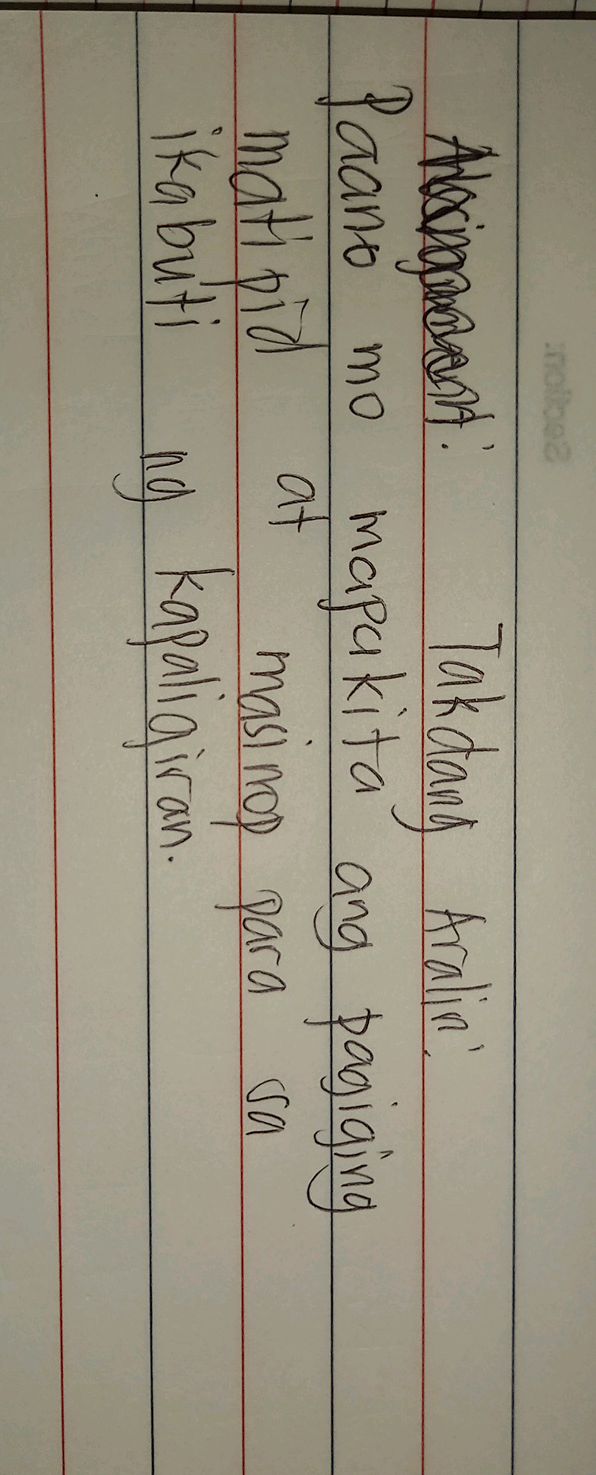 Takdang Aralin:
Paano mo mapakita ang pagiging
matipid at masinop para sa
ikabuti ng kapaligiran.